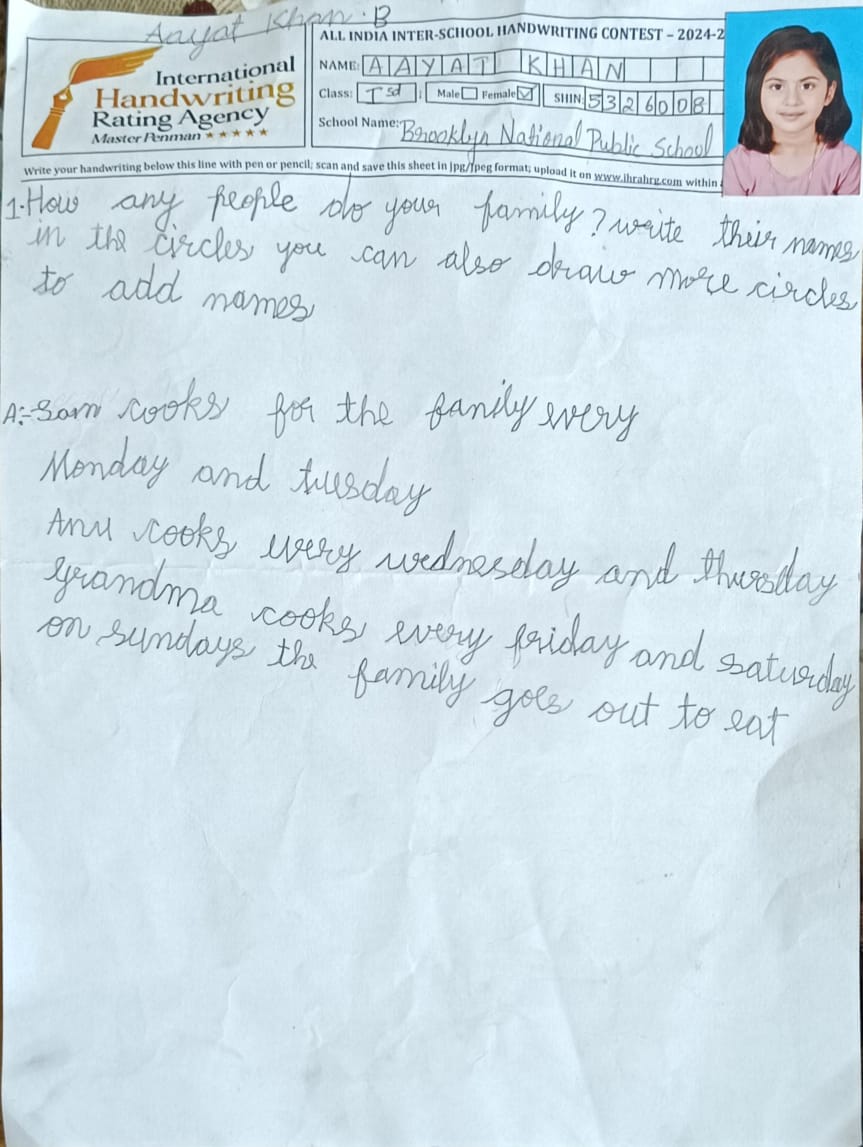 Aayat Khan.B
International
Handwriting
Rating Agency
Master Penman ★★★★★
ALL INDIA INTER-SCHOOL HANDWRITING CONTEST – 2024-2
NAME: AAYAT KHAN
Class: I sd ; Male Female ✓ SHIN: 5326008
School Name:- Brooklyn National Public School
Write your handwriting below this line with pen or pencil; scan and save this sheet in jpg/jpeg format; upload it on www.ihrahrg.com within
1.How any people do your family? write their names
in the circles you can also draw more circles
to add names
A:-Sam cooks for the fanily every
Monday and tuesday
Anu cooks every wednesday and thursday
grandma cooks every friday and saturday
on sundays the family goes out to eat